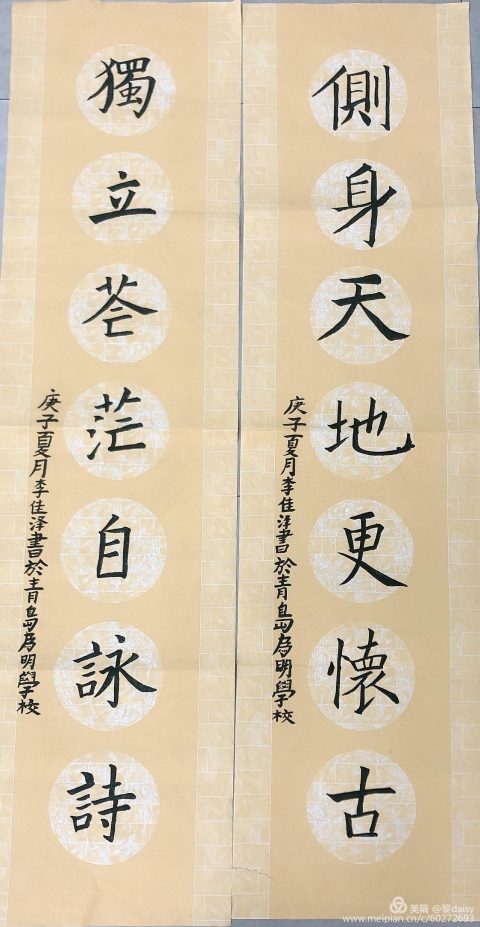 側身天地更懷古
庚子夏月李佳泽書於青島為明學校
獨立苍茫自詠詩
庚子夏月李佳泽書於青島為明學校
美篇 @黎daisy
www.meipian.cn/c/60272693